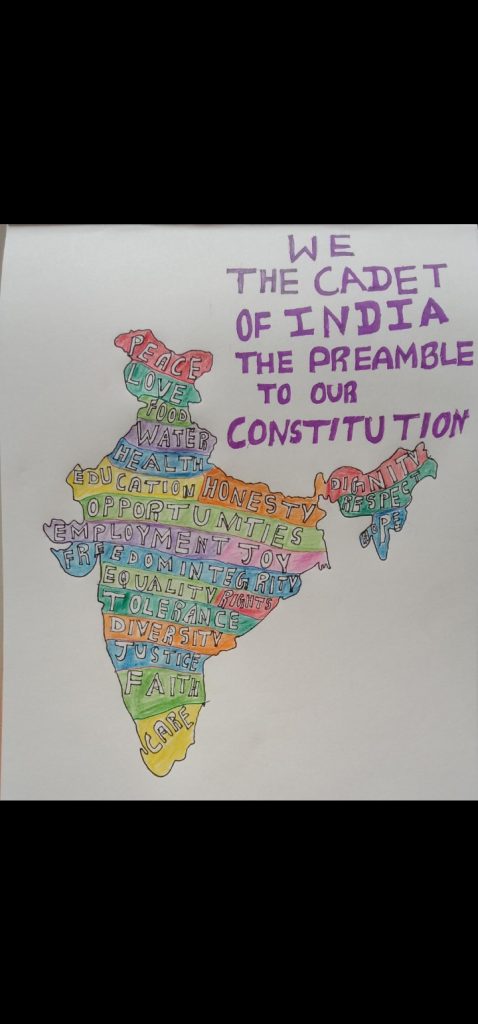 WE
THE CADET
OF INDIA
THE PREAMBLE
TO OUR
CONSTITUTION
PEACE
LOVE
FOOD
WATER
HEALTH
EDUCATION HONESTY
OPPORTUNITIES
EMPLOYMENT JOY
FREEDOM INTEGRITY
EQUALITY RIGHTS
TOLERANCE
DIVERSITY
JUSTICE
FAITH
CARE
DIGNITY
RESPECT
HOPE